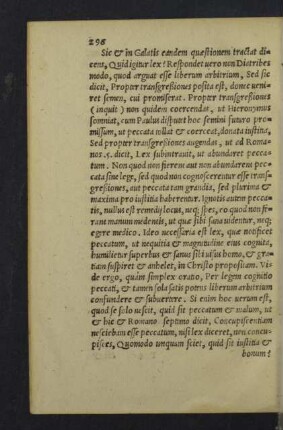 296
Sic & in Galatis eandem quæstionem tractat di-
cens, Quid igitur lex? Respondet uero non Diatribes
modo, quod arguat esse liberum arbitrium, Sed sic
dicit, Propter transgressiones posita est, donec ueni-
ret semen, cui promiserat. Propter transgressiones
(inquit) non quidem coercendas, ut Hieronymus
somniat, cum Paulus disputet hoc semini futuro pro-
missum, ut peccata tollat & coerceat, donata iustitia,
Sed propter transgressiones augendas, ut ad Roma-
nos.5. dicit, Lex subintrauit, ut abundaret pecca-
tum. Non quod non fierent aut non abundarent pec-
cata sine lege, sed quod non cognoscerentur esse trans-
gressiones, aut peccata tam grandia, sed plurima &
maxima pro iustitia haberentur. Ignotis autem pecca-
tis, nullus est remedij locus, neq; spes, eo quod non fe-
rant manum medentis, ut quæ sibi sana uidentur, neq;
egere medico. Ideo necessaria est lex, quæ notificet
peccatum, ut nequitia & magnitudine eius cognita,
humilietur superbus & sanus sibi uisus homo, & gra-
tiam suspiret & anhelet, in Christo propositam. Vi-
de ergo, quàm simplex oratio, Per legem cognitio
peccati, & tamen sola satis potens liberum arbitrium
confundere & subuertere. Si enim hoc uerum est,
quod se solo nescit, quid sit peccatum & malum, ut
& hic & Romano septimo dicit, Concupiscentiam
nesciebam esse peccatum, nisi lex diceret, non concu-
pisces, Quomodo unquam sciet, quid sit iustitia &
bonum?